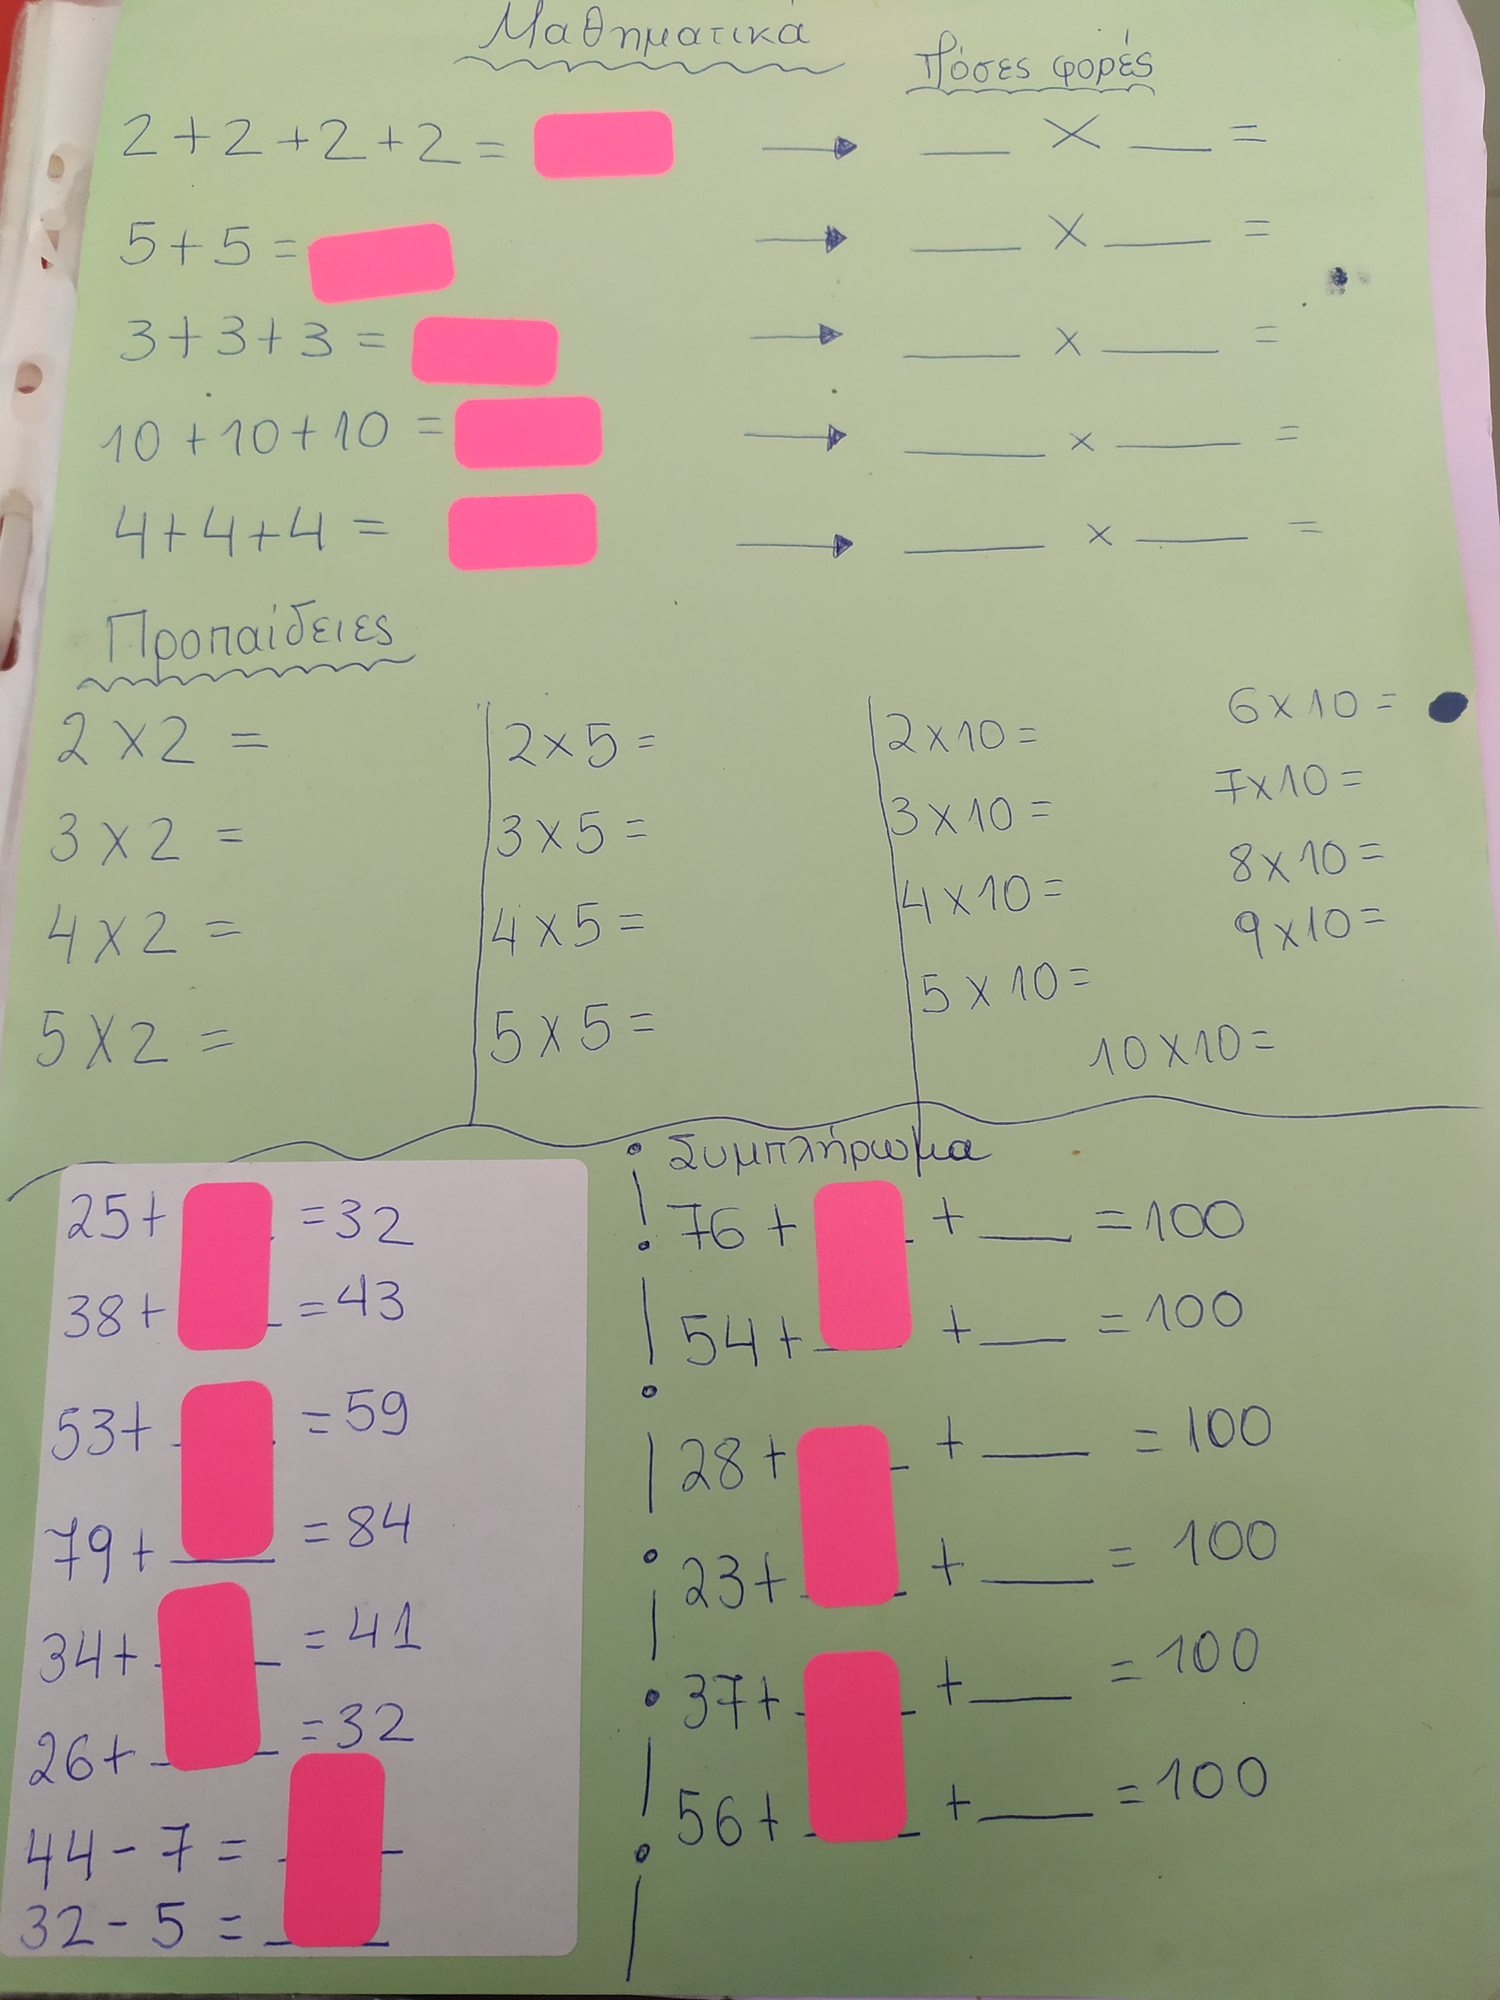 Μαθηματικά
Πόσες φορές
2+2+2+2= → __ X __ =
5+5= → __ X __ =
3+3+3= → __ x __ =
10+10+10= → __ x __ =
4+4+4= → __ x __ =
Προπαίδειες
2x2=
3x2=
4x2=
5x2=
2x5=
3x5=
4x5=
5x5=
2x10=
3x10=
4x10=
5x10=
6x10=
7x10=
8x10=
9x10=
10x10=
25+ __ =32
38+ __ =43
53+ __ =59
79+ __ =84
34+ __ =41
26+ __ =32
44-7= __
32-5= __
Συμπλήρωμα
76+ __ + __ =100
54+ __ + __ =100
28+ __ + __ =100
23+ __ + __ =100
37+ __ + __ =100
56+ __ + __ =100